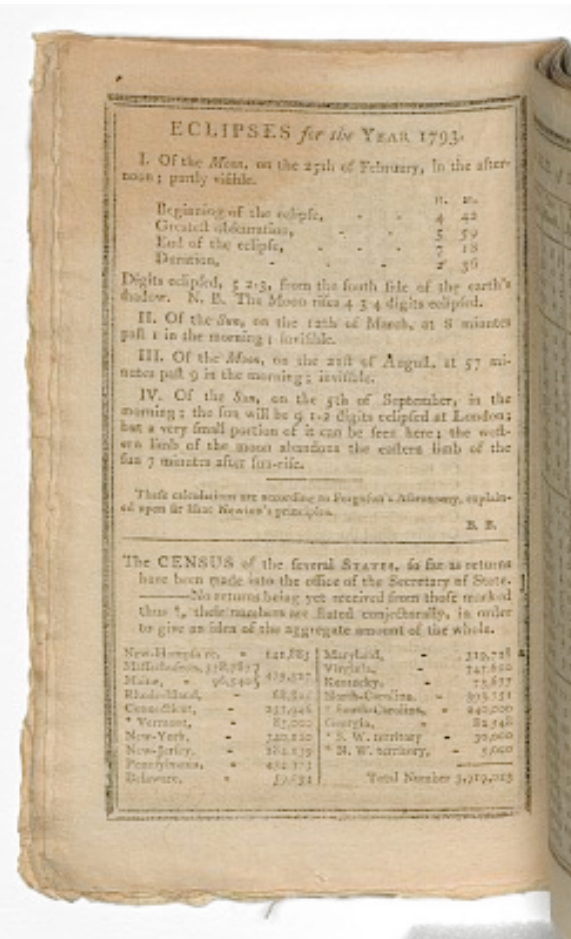 ECLIPSES for the YEAR 1793.
I. Of the Moon, on the 25th of February, in the after-
noon; partly visible.
H. M.
Beginning of the eclipse, - - 4 42
Greatest obscuration, - - 5 59
End of the eclipse, - - - 7 18
Duration, - - - 2 36
Digits eclipsed, 5 2-3, from the south side of the earth's
shadow. N. B. The Moon rises 4 3-4 digits eclipsed.
II. Of the Sun, on the 12th of March, at 8 minutes
past 1 in the morning; invisible.
III. Of the Moon, on the 21st of August, at 57 mi-
nutes past 9 in the morning; invisible.
IV. Of the Sun, on the 5th of September, in the
morning; the sun will be 9 1-2 digits eclipsed at London;
but a very small portion of it can be seen here; the west-
ern limb of the moon abandons the eastern limb of the
sun 7 minutes after sun-rise.
These calculations are according to Ferguson's Astronomy, explain-
ed upon sir Isaac Newton's principles.
B. B.
The CENSUS of the several STATES, so far as returns
have been made into the office of the Secretary of State.
——No returns being yet received from those marked
thus *, these numbers are stated conjecturally, in order
to give an idea of the aggregate amount of the whole.
New-Hampshire, - 141,885
Massachusetts,
Maine, -
Rhode-Island, -
Connecticut, - 237,946
* Vermont, - 85,000
New-York, -
New-Jersey, -
Pennsylvania, -
Delaware, -
Maryland, - 319,728
Virginia, -
Kentucky, - 73,677
North-Carolina, - 393,751
* South-Carolina, - 240,000
Georgia, - 82,548
* S. W. territory - 30,000
* N. W. territory, - 5,000
Total Number